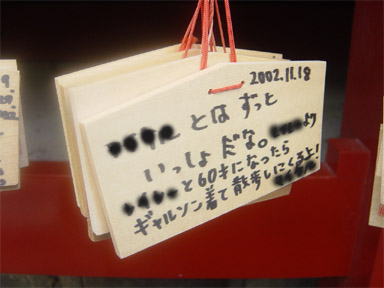 2002.11.18
とはずっと
いっしょだな。より
と60才になったら
ギャルソン着て散歩しにくるよ!